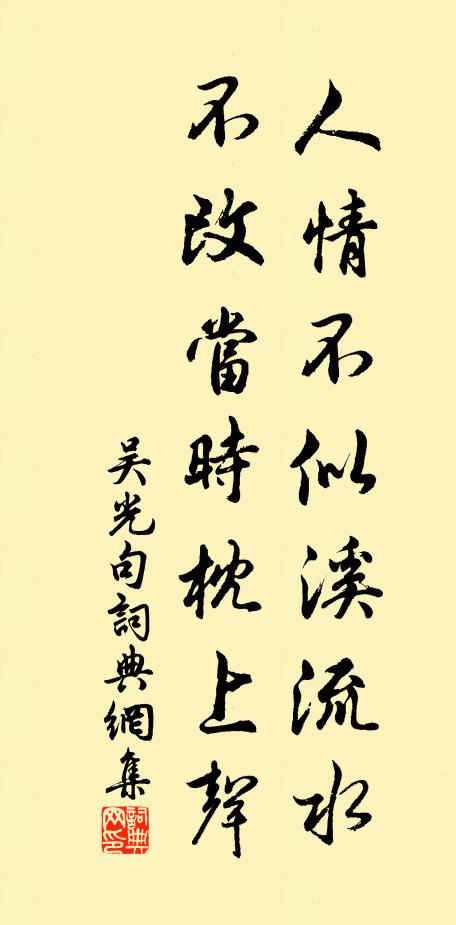 人情不似溪流水
不改當時枕上聲
吴光句詞典網集
詞典网印